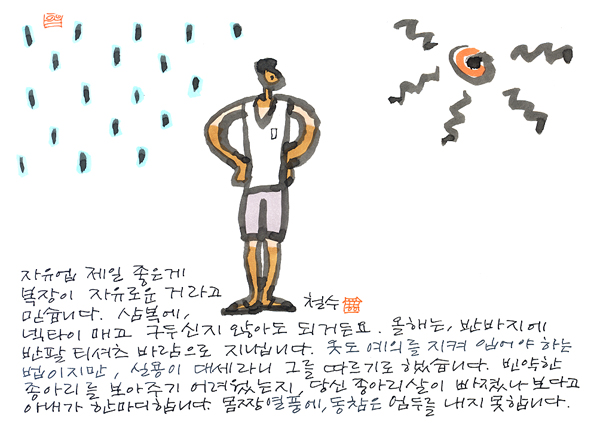 자유업 제일 좋은게
복장이 자유로운 거라고
믿습니다. 삼복에,
철수
넥타이 매고 구두신지 않아도 되거든요. 올해는, 반바지에
반팔 티셔츠 바람으로 지냅니다. 옷도 예의를 지켜 입어야 하는
법이지만, 실용이 대세라니 그를 따르기로 했습니다. 빈약한
종아리를 보아주기 어려웠는지, 당신 종아리살이 빠졌나 보다고
아내가 한마디합니다. 몸짱열풍에, 동참은 엄두를 내지 못합니다.